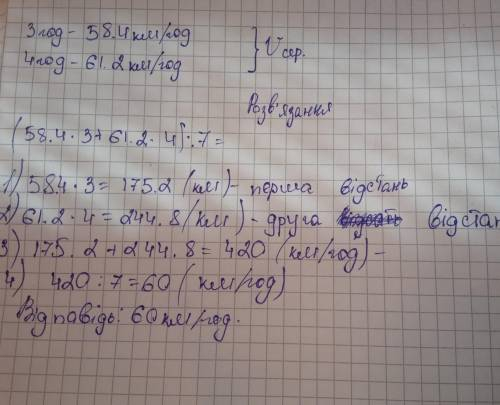 3год - 58.4 км/год
4год - 61.2 км/год } Vсер.
Розв'язання
(58.4 · 3 + 61.2 · 4) : 7 =
1) 584 · 3 = 175.2 (км) - перша відстань
2) 61.2 · 4 = 244.8 (км) - друга відстан
3) 175.2 + 244.8 = 420 (км/год) -
4) 420 : 7 = 60 (км/год)
Відповідь: 60 км/год.